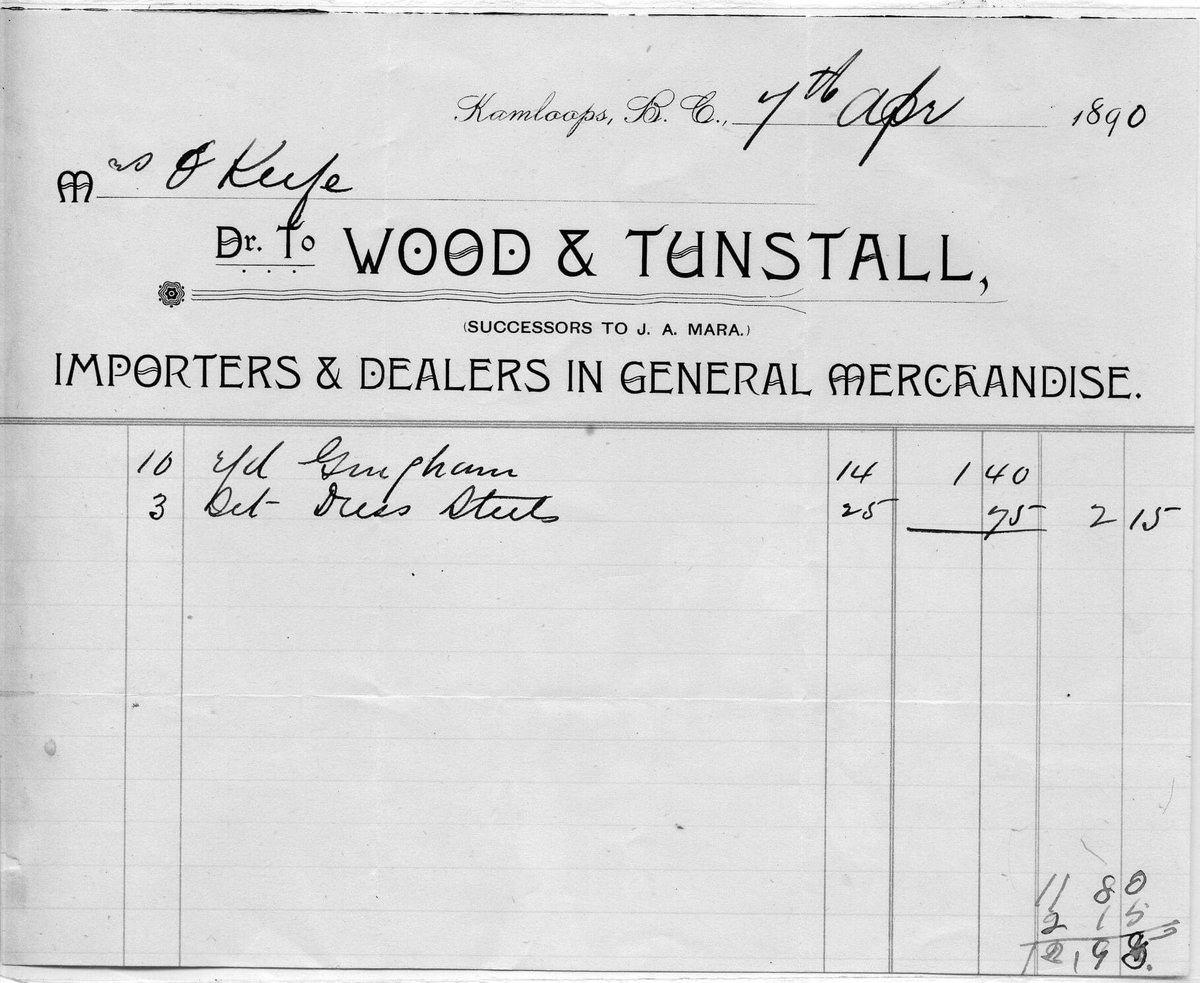 Kamloops, B. C., 7th Apr 1890
Mrs O Keefe
Dr. To WOOD & TUNSTALL,
(SUCCESSORS TO J. A. MARA.)
IMPORTERS & DEALERS IN GENERAL MERCHANDISE.
10 yd Gingham 14 1 40
3 Set Dress Steels 25 75 2 15
11 80
2 15